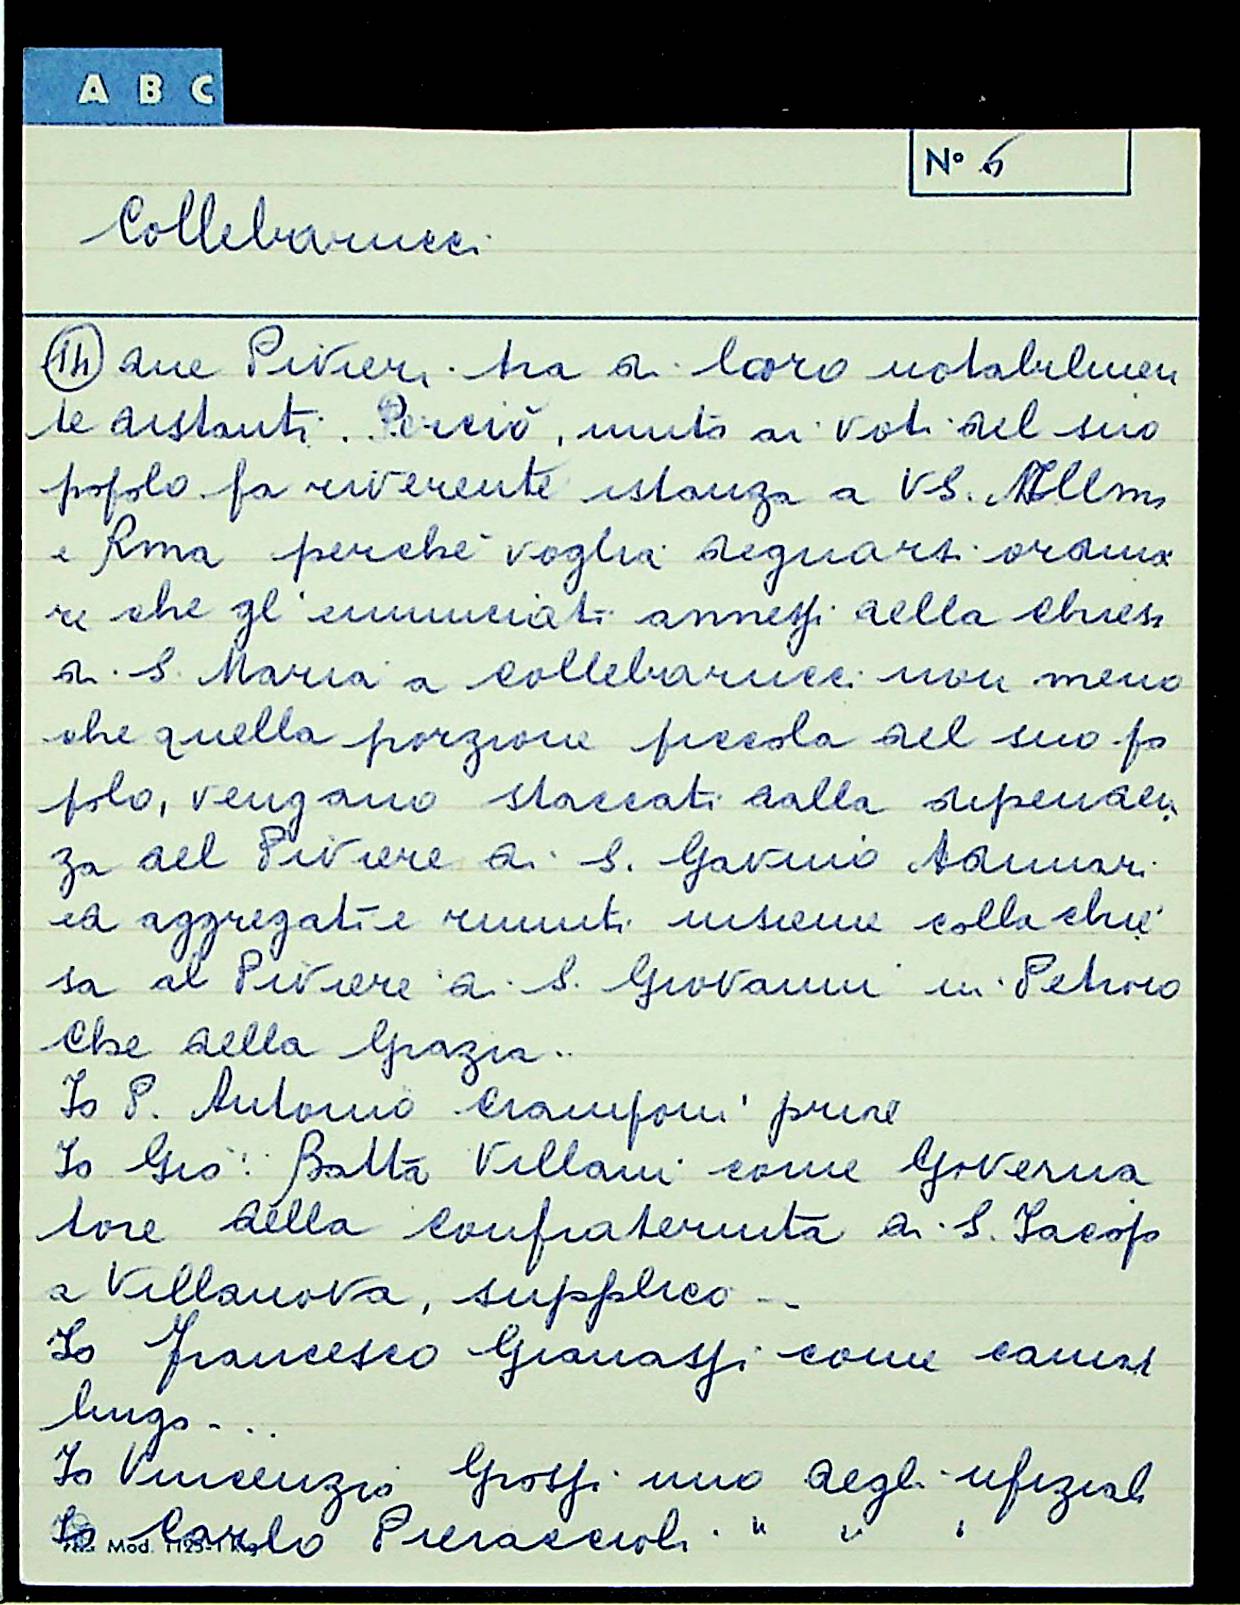 A B C
N° 6
Collebarucci
14 due Pivieri tra di loro notabilmen
te distanti. Perciò, unito ai voti del suo
popolo fa riverente istanza a VS. Illma
e Rma perché voglia degnarsi ordina
re che gl'enunciati annessi della chiesa
di S. Maria a Collebarucci non meno
che quella porzione piccola del suo po
polo, vengano staccati dalla dipenden
za del Piviere di S. Gavino Adimari
ed aggregati e riuniti insieme colla chie
sa al Piviere di S. Giovanni in Petroio
Che della Grazia..
Io P. Antonio Ciamponi
Io Gio: Batta Villani come Governa
tore della confraternita di S. Iacopo
a Villanova, supplico -..
Io Francesco Gianassi come camar
lingo -..
Io Vincenzio Grossi uno degli ufiziali
Io Carlo Pieraccioli " " "
Mod. 1125-1